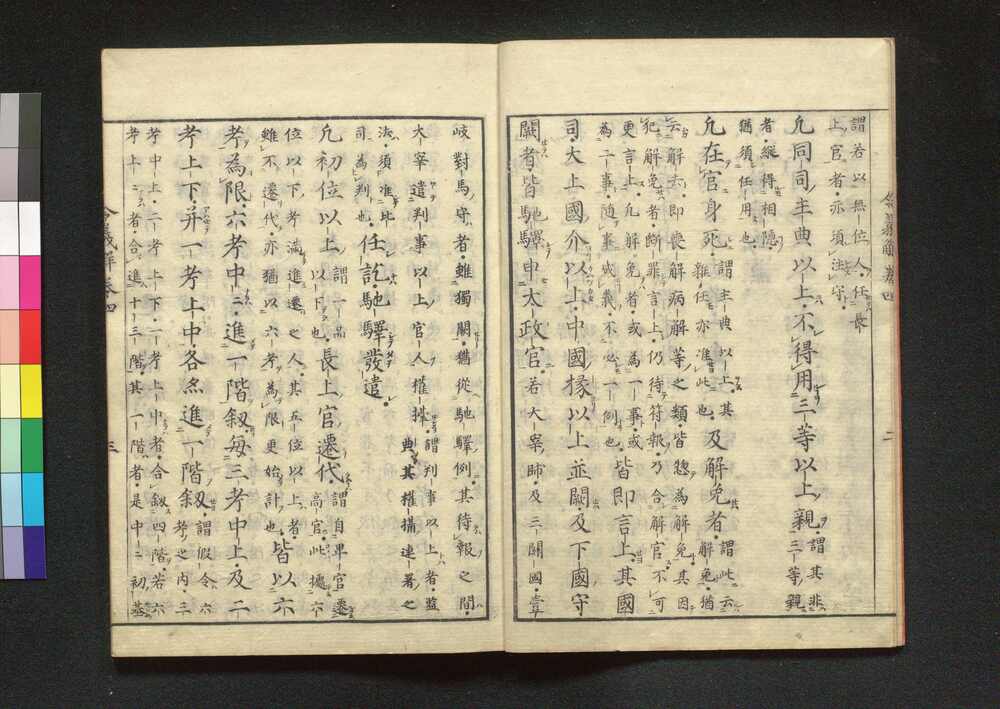 謂若以無位人任長
上官者亦須注守
凡同司主典以上不得用三等以上親謂其非
三等親
者縱得相隱
猶須任用也
凡在官身死謂主典以上其
雜任亦准此也及解免者謂此云
解免猶
云解去即喪解病解等之類皆惣為解免其因
犯解免者斷罪言上仍待符報乃合解官不可
更言上凡解免者或為一事或
為二事隨事成義不必一例也皆即言上其國
司大上國介以上中國掾以上並闕及下國守
闕者皆馳驛申太政官若大宰師及三關國壹
令義解卷四 二
岐對馬守者雖獨闕猶從馳驛例其待報之間
大宰遣判事以上官人權攝謂判事以上者監
典其權攝連署之
法須准此
司為判也任訖馳驛發遣
凡初位以上謂一品
以下也長上官遷代謂自卑官遷
高官此據六
位以下考滿進遷之人其五位以上者
雖不遷代亦猶以六考為限更始計也皆以六
考為限六考中中進一階叙每三考中上及二
考上下并一考上中各亦進一階叙謂假令六
考之內三
考中上二考上下一考上中者合叙四階若六
考上々者合進十三階其一階者是中々初基
令義解卷四 三